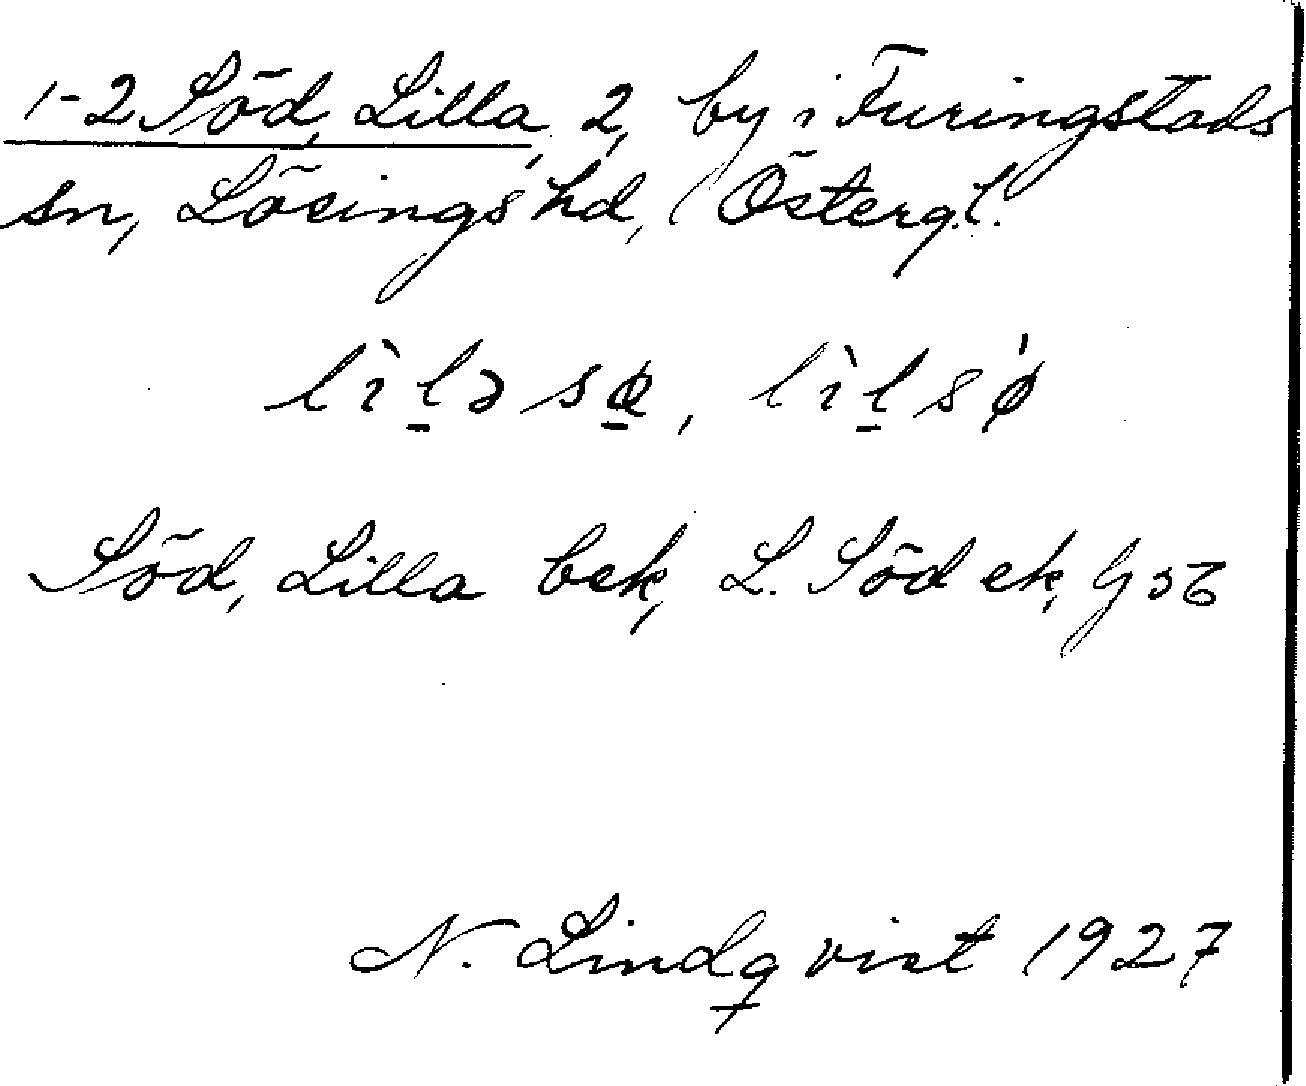 1-2 Söd, Lilla, 2, by i Furingstads
sn, Lösings hd, Östergl.
lìləsœ, lìlsǿ
Söd, Lilla bek, L. Söd ek, Gst
N. Lindqvist 1927